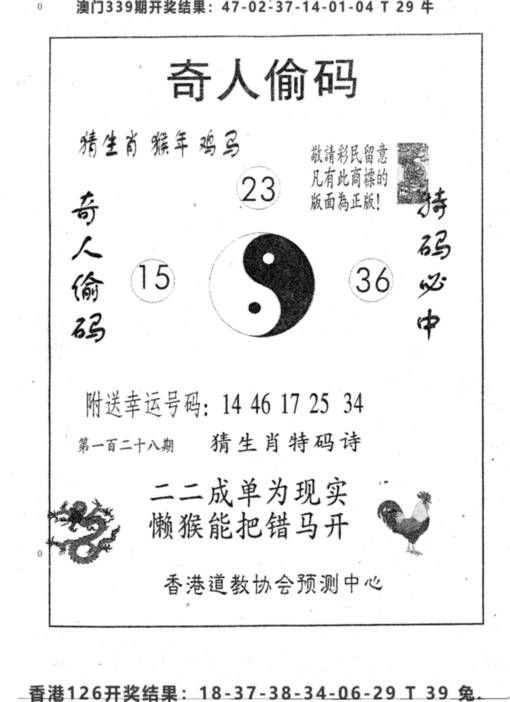 澳门339期开奖结果：47-02-37-14-01-04 T 29 牛
奇人偷码
猜生肖 猴年 鸡马
敬請彩民留意
凡有此商標的
版面為正版！
23
奇人偷码
特码必中
15
36
附送幸运号码：14 46 17 25 34
第一百二十八期 猜生肖特码诗
二二成单为现实
懒猴能把错马开
香港道教协会预测中心
香港126开奖结果：18-37-38-34-06-29 T 39 兔.